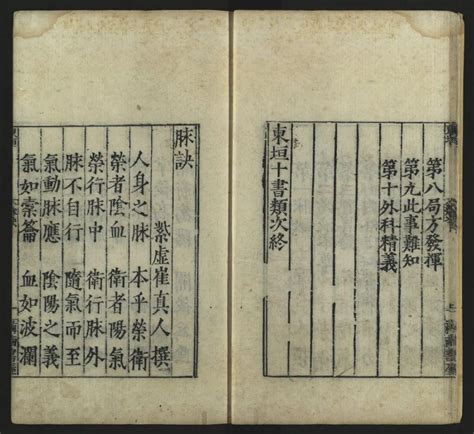 第八局方發揮
第九此事難知
第十外科精義
東垣十書類次終
脉訣
紫虛崔真人撰
人身之脉 本乎榮衛
榮者陰血 衛者陽氣
榮行脉中 衛行脉外
脉不自行 隨氣而至
氣動脉應 陰陽之義
氣如橐籥 血如波瀾